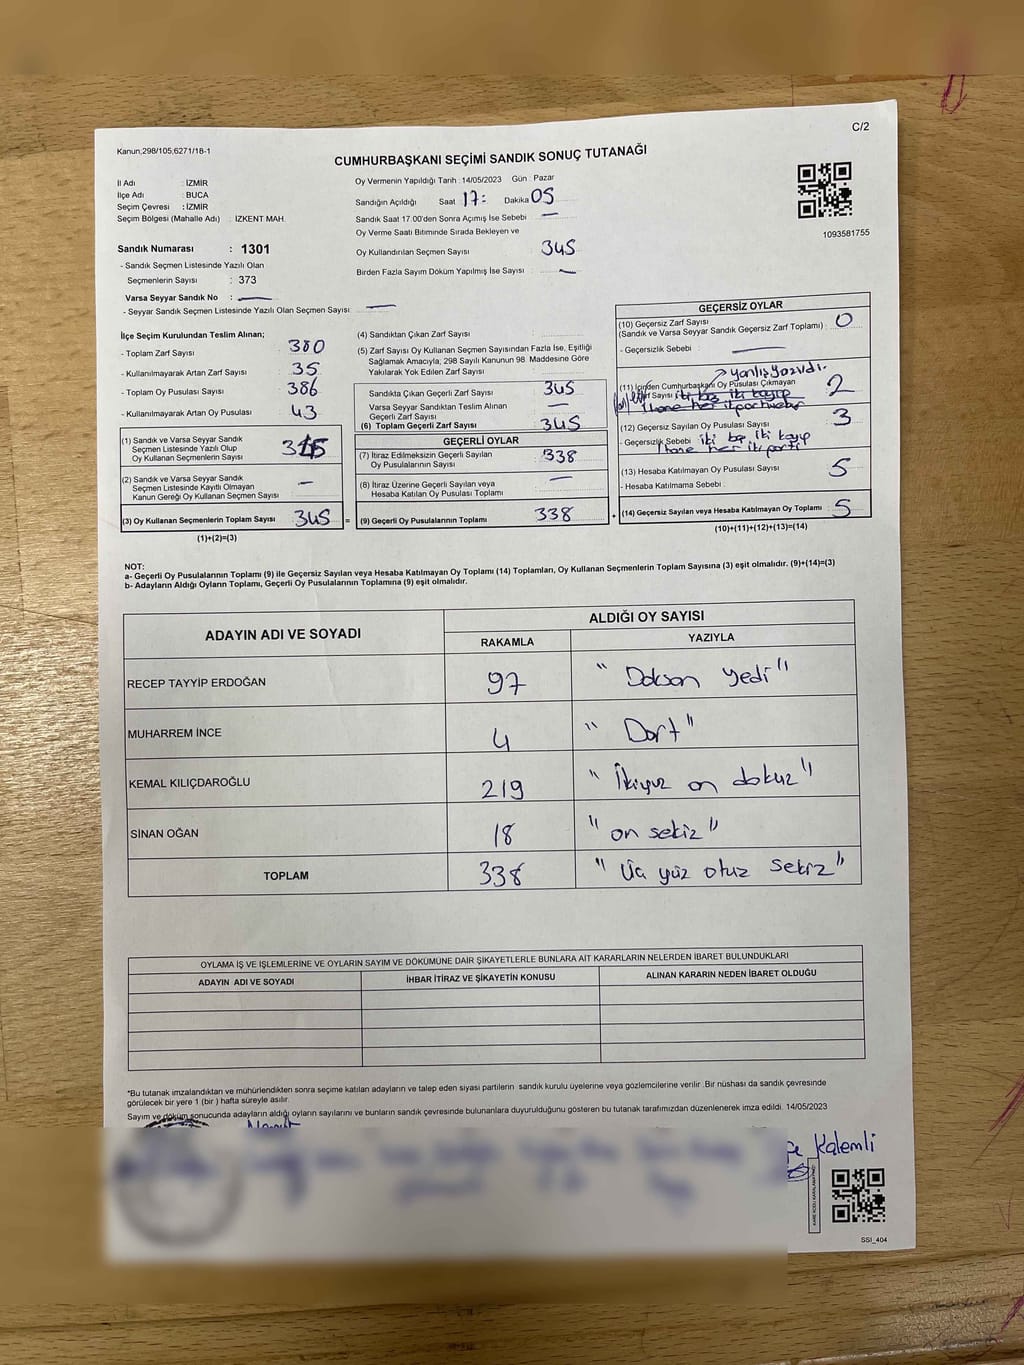 C/2
Kanun;298/105,6271/18-1
CUMHURBAŞKANI SEÇİMİ SANDIK SONUÇ TUTANAĞI
İl Adı : İZMİR
İlçe Adı : BUCA
Seçim Çevresi : İZMİR
Seçim Bölgesi (Mahalle Adı) : İZKENT MAH.
Oy Vermenin Yapıldığı Tarih : 14/05/2023 Gün : Pazar
Sandığın Açıldığı Saat 17: Dakika 05
Sandık Saat 17.00'den Sonra Açımış İse Sebebi —
Oy Verme Saati Bitiminde Sırada Bekleyen ve
Oy Kullandırılan Seçmen Sayısı 345
Birden Fazla Sayım Döküm Yapılmış İse Sayısı : —
1093581755
Sandık Numarası : 1301
- Sandık Seçmen Listesinde Yazılı Olan
Seçmenlerin Sayısı : 373
Varsa Seyyar Sandık No : —
- Seyyar Sandık Seçmen Listesinde Yazılı Olan Seçmen Sayısı : —
İlçe Seçim Kurulundan Teslim Alınan;
- Toplam Zarf Sayısı : 380
- Kullanılmayarak Artan Zarf Sayısı : 35
- Toplam Oy Pusulası Sayısı : 386
- Kullanılmayarak Artan Oy Pusulası : 43
(1) Sandık ve Varsa Seyyar Sandık
Seçmen Listesinde Yazılı Olup
Oy Kullanan Seçmenlerin Sayısı
(2) Sandık ve Varsa Seyyar Sandık
Seçmen Listesinde Kayıtlı Olmayan
Kanun Gereği Oy Kullanan Seçmen Sayısı —
(3) Oy Kullanan Seçmenlerin Toplam Sayısı 345 =
(1)+(2)=(3)
(4) Sandıktan Çıkan Zarf Sayısı :
(5) Zarf Sayısı Oy Kullanan Seçmen Sayısından Fazla İse, Eşitliği
Sağlamak Amacıyla, 298 Sayılı Kanunun 98. Maddesine Göre
Yakılarak Yok Edilen Zarf Sayısı :
Sandıkta Çıkan Geçerli Zarf Sayısı : 345
Varsa Seyyar Sandıktan Teslim Alınan
Geçerli Zarf Sayısı : —
(6) Toplam Geçerli Zarf Sayısı : 345
GEÇERLİ OYLAR
(7) İtiraz Edilmeksizin Geçerli Sayılan
Oy Pusulalarının Sayısı : 338
(8) İtiraz Üzerine Geçerli Sayılan veya
Hesaba Katılan Oy Pusulası Toplamı : —
(9) Geçerli Oy Pusulalarının Toplamı 338 +
GEÇERSİZ OYLAR
(10) Geçersiz Zarf Sayısı
(Sandık ve Varsa Seyyar Sandık Geçersiz Zarf Toplamı) : 0
- Geçersizlik Sebebi : —
yanlış yazıldı.
(11) İçinden Cumhurbaşkanı Oy Pusulası Çıkmayan
Zarf Sayısı 2
(12) Geçersiz Sayılan Oy Pusulası Sayısı : 3
- Geçersizlik Sebebi iki boş iki kayıp
1 hane her iki parti
(13) Hesaba Katılmayan Oy Pusulası Sayısı : 5
- Hesaba Katılmama Sebebi :
(14) Geçersiz Sayılan veya Hesaba Katılmayan Oy Toplamı : 5
(10)+(11)+(12)+(13)=(14)
NOT:
a- Geçerli Oy Pusulalarının Toplamı (9) ile Geçersiz Sayılan veya Hesaba Katılmayan Oy Toplamı (14) Toplamları, Oy Kullanan Seçmenlerin Toplam Sayısına (3) eşit olmalıdır. (9)+(14)=(3)
b- Adayların Aldığı Oyların Toplamı, Geçerli Oy Pusulalarının Toplamına (9) eşit olmalıdır.
ADAYIN ADI VE SOYADI
ALDIĞI OY SAYISI
RAKAMLA YAZIYLA
RECEP TAYYİP ERDOĞAN 97 "Doksan yedi"
MUHARREM İNCE 4 "Dört"
KEMAL KILIÇDAROĞLU 219 "İkiyüz on dokuz"
SİNAN OĞAN 18 "on sekiz"
TOPLAM 338 "Üç yüz otuz sekiz"
OYLAMA İŞ VE İŞLEMLERİNE VE OYLARIN SAYIM VE DÖKÜMÜNE DAİR ŞİKAYETLERLE BUNLARA AİT KARARLARIN NELERDEN İBARET BULUNDUKLARI
ADAYIN ADI VE SOYADI İHBAR İTİRAZ VE ŞİKAYETİN KONUSU ALINAN KARARIN NEDEN İBARET OLDUĞU
*Bu tutanak imzalandıktan ve mühürlendikten sonra seçime katılan adayların ve talep eden siyasi partilerin sandık kurulu üyelerine veya gözlemcilerine verilir .Bir nüshası da sandık çevresinde
görülecek bir yere 1 (bir ) hafta süreyle asılır.
Sayım ve döküm sonucunda adayların aldığı oyların sayılarını ve bunların sandık çevresinde bulunanlara duyurulduğunu gösteren bu tutanak tarafımızdan düzenlenerek imza edildi. 14/05/2023
Kalemli
SSİ_404